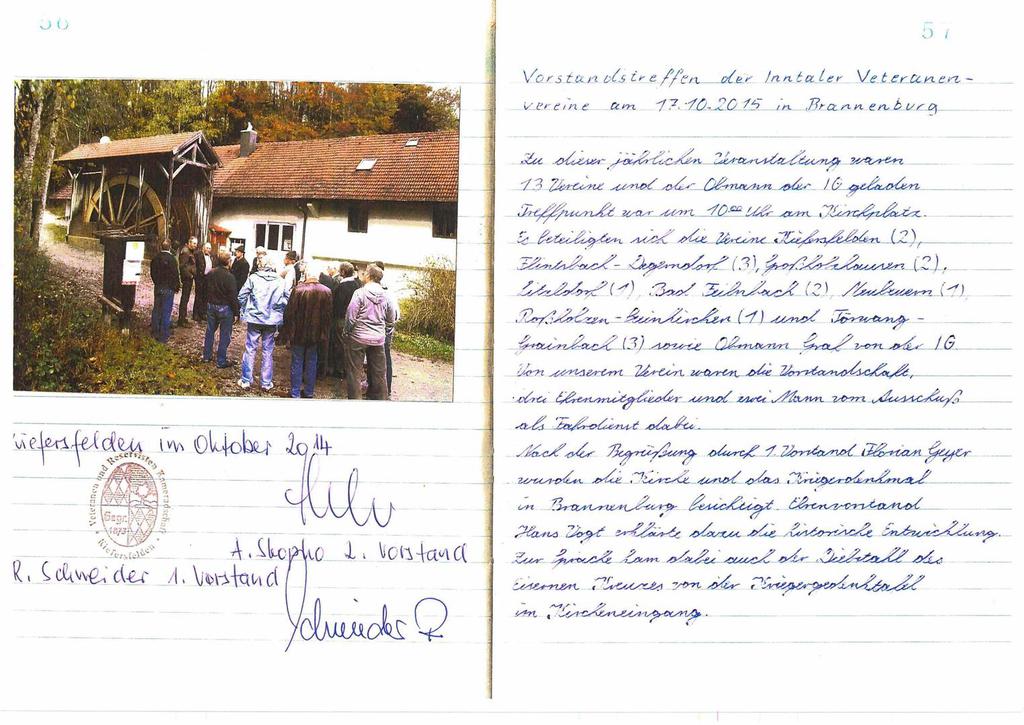 56
Kiefersfelden im Oktober 2014
Veteranen und Reservisten Kameradschaft
Gegr.
1873
Kiefersfelden
A. Skopko 2. Vorstand
R. Schneider 1. Vorstand
Schneider R
57
Vorstandstreffen der Inntaler Veteranen-
vereine am 17.10.2015 in Brannenburg
Zu dieser jährlichen Veranstaltung waren
13 Vereine und der Obmann der IG geladen
Treffpunkt war um 10⁰⁰ Uhr am Kirchplatz.
Es beteiligten sich die Vereine Kiefersfelden (2),
Flintsbach - Degerndorf (3), Großholzhausen (2),
Litzldorf (1), Bad Feilnbach (2), Neubeuern (1),
Roßholzen - Steinkirchen (1) und Törwang -
Grainbach (3) sowie Obmann Graf von der IG.
Von unserem Verein waren die Vorstandschaft,
drei Ehrenmitglieder und zwei Mann vom Ausschuß
als Fahrdienst dabei.
Nach der Begrüßung durch 1. Vorstand Florian Geyer
wurden die Kirche und das Kriegerdenkmal
in Brannenburg besichtigt. Ehrenvorstand
Hans Vogt erklärte dazu die historische Entwicklung.
Zur Sprache kam dabei auch der Diebstahl des
Eisernen Kreuzes von der Kriegergedenktafel
im Kircheneingang.